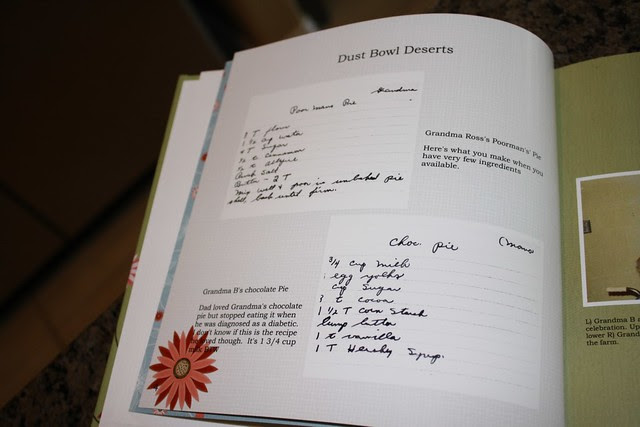 Dust Bowl Deserts
Grandma
Poor Mans Pie
3 T flour
1 ½ cup water
4 T Sugar
½ t. Cinnamon
½ t. allspice
Pinch Salt
Butter - 2 T
Mix well & pour in unbaked pie
shell, bake until firm.
Grandma Ross's Poorman's' Pie
Here's what you make when you
have very few ingredients
available.
Choc. pie (Mom
3/4 cup milk
egg yolks
cup Sugar
3 t cocoa
1 ½ T Corn Starch
lump butter
1 t vanilla
1 T Hershy Syrup.
Grandma B's chocolate Pie
Dad loved Grandma's chocolate
pie but stopped eating it when
he was diagnosed as a diabetic.
I don't know if this is the recipe
he loved though. It's 1 3/4 cup
L) Grandma B
celebration. Up
lower R) Grand
the farm.